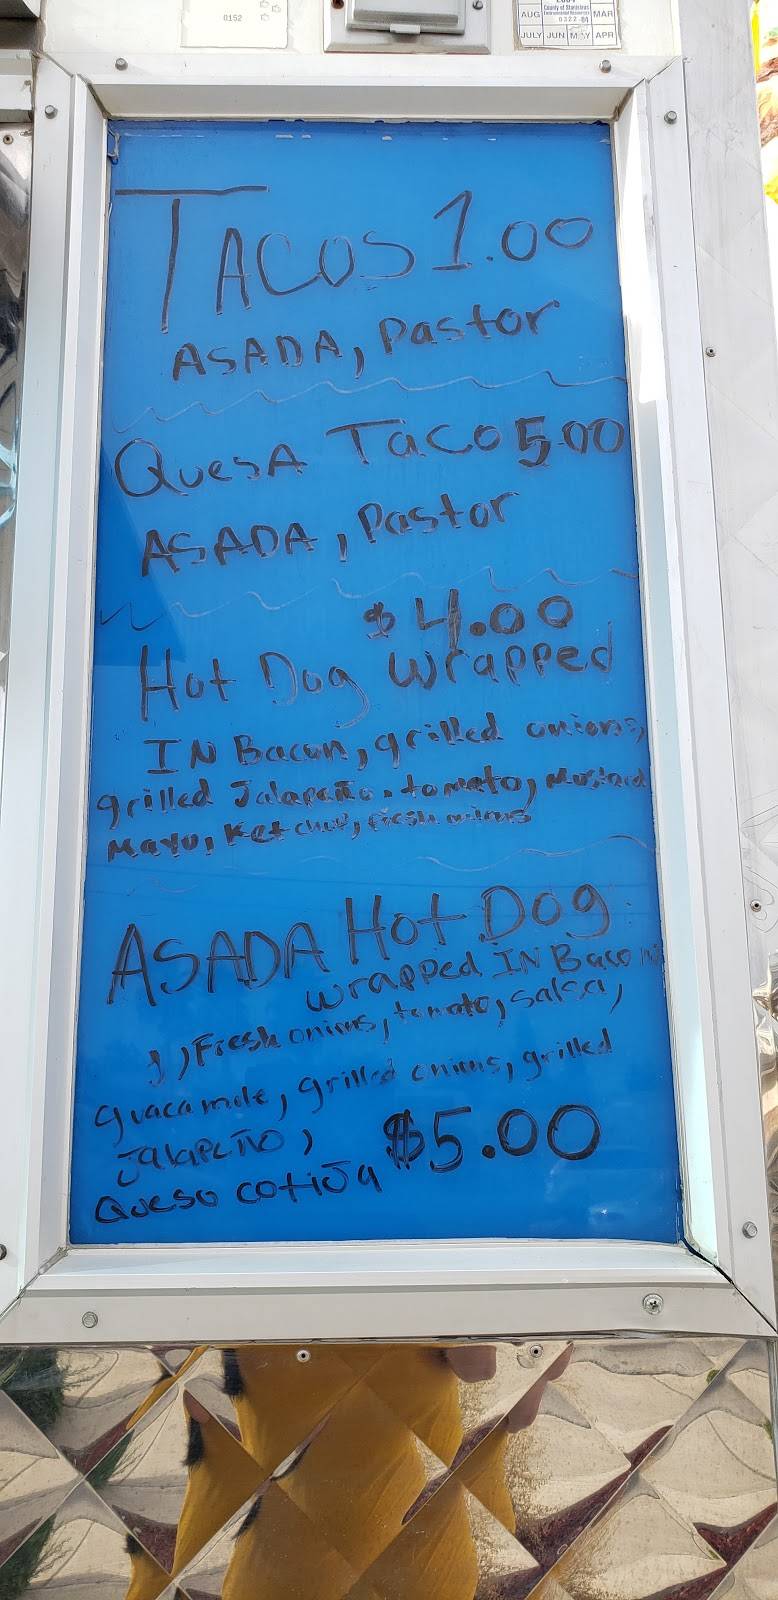 0152
County of Stanislaus
Environmental Resources
AUG 0322 MAR
JULY JUN MAY APR
TACOS 1.00
ASADA, Pastor
QuesA Taco 5.00
ASADA, Pastor
$4.00
Hot Dog Wrapped
IN Bacon, grilled onions,
grilled Jalapeño, tomato, Mustard
Mayo, Ketchup, fresh onions
ASADA Hot Dog
wrapped IN Bacon
, Fresh onions, tomato, salsa,
guacamole, grilled onions, grilled
JALAPEÑO, $5.00
Queso cotiJa